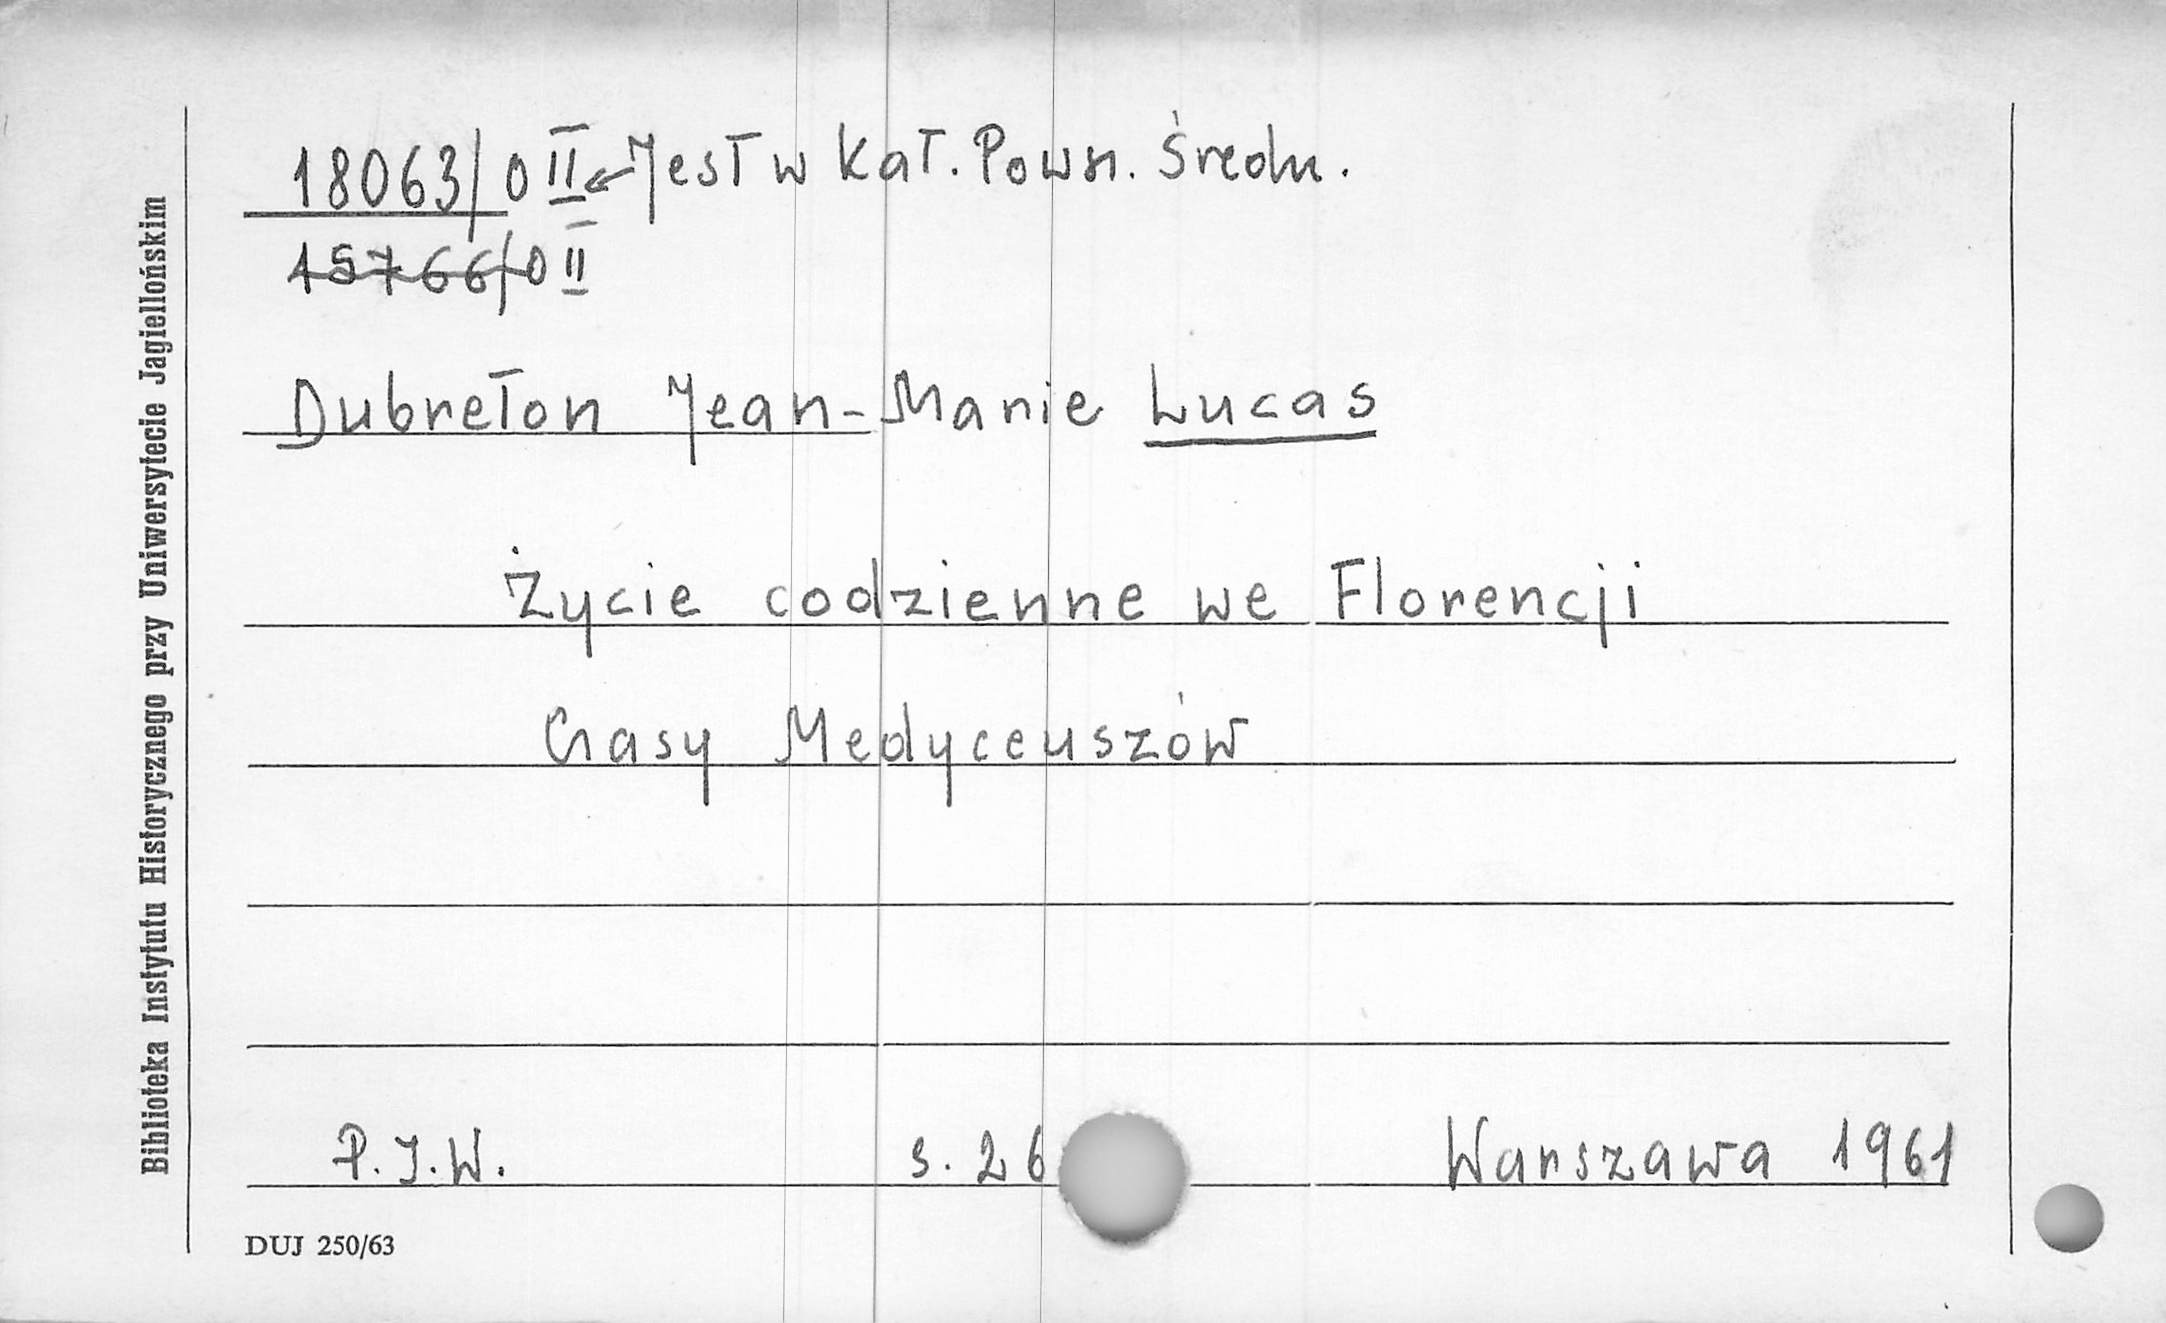 18063/0 II ← Jest w Kat. Pown. Średn.
15766/0 II
Dubreton Jean-Marie Lucas
Życie codzienne we Florencji
Czasy Medyceuszów
P.I.W. s. 26 Warszawa 1961
DUJ 250/63
Biblioteka Instytutu Historycznego przy Uniwersytecie Jagiellońskim